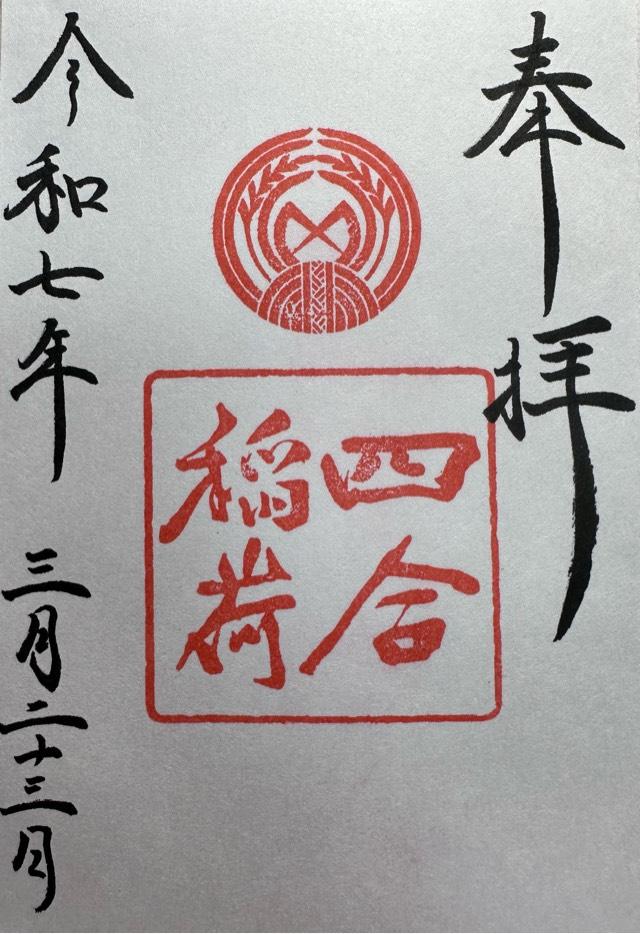 奉拝
四合
稲荷
令和七年 三月二十三日